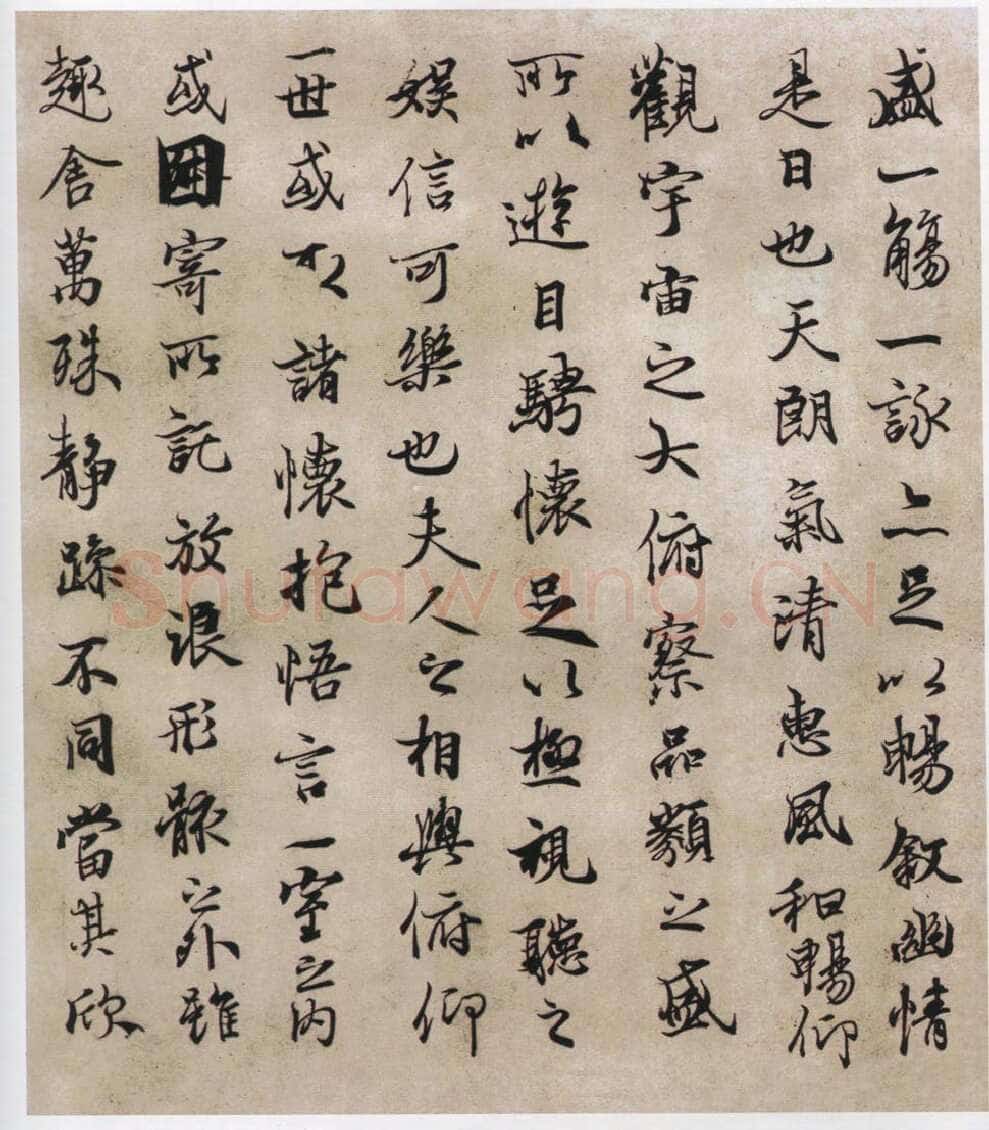 盛一觴一詠亦足以暢叙幽情
是日也天朗氣清惠風和暢仰
觀宇宙之大俯察品類之盛
所以遊目騁懷足以極視聽之
娛信可樂也夫人之相與俯仰
一世或取諸懷抱悟言一室之內
或因寄所託放浪形骸之外雖
趣舍萬殊静躁不同當其欣
Shufawang.CN